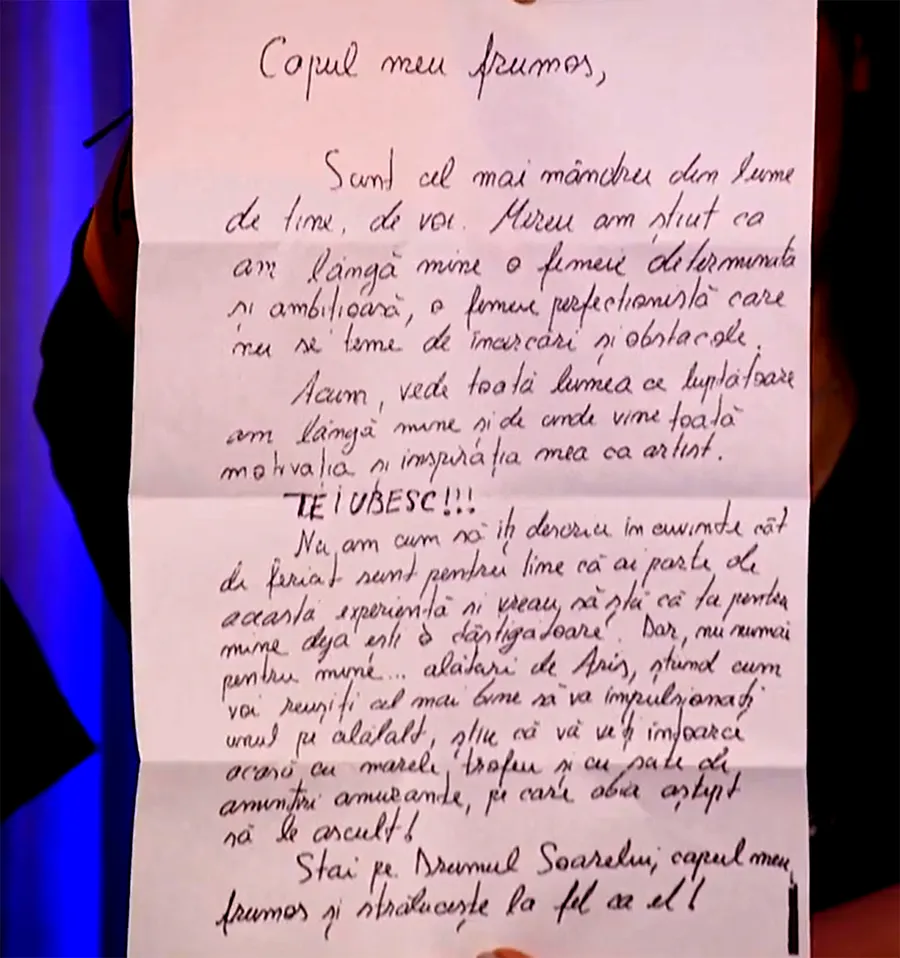 Capul meu frumos,
Sunt cel mai mândru din lume
de tine, de voi. Mereu am știut ca
am lângă mine o femeie determinata
si ambițioasă, o femeie perfectionistă care
nu se teme de încărcări și obstacole.
Acum, vede toată lumea ce luptătoare
am lângă mine și de unde vine toată
motivația si inspirația mea ca artist.
TE IUBESC!!!
Nu am cum să îți descriu în cuvinte cât
de fericit sunt pentru tine că ai parte de
aceasta experiență si vreau să știi că tu pentru
mine deja ești o câștigătoare. Dar, nu numai
pentru mine... alături de Aris, știind cum
voi reușiți cel mai bine să va impulsionați
unul pe alălalt, știu că vă veți întoarce
acasă cu marele trofeu și cu sute de
amintiri amuzante, pe care abia aștept
să le ascult!
Stai pe Drumul Soarelui, capul meu
frumos și strălucește la fel ca el!